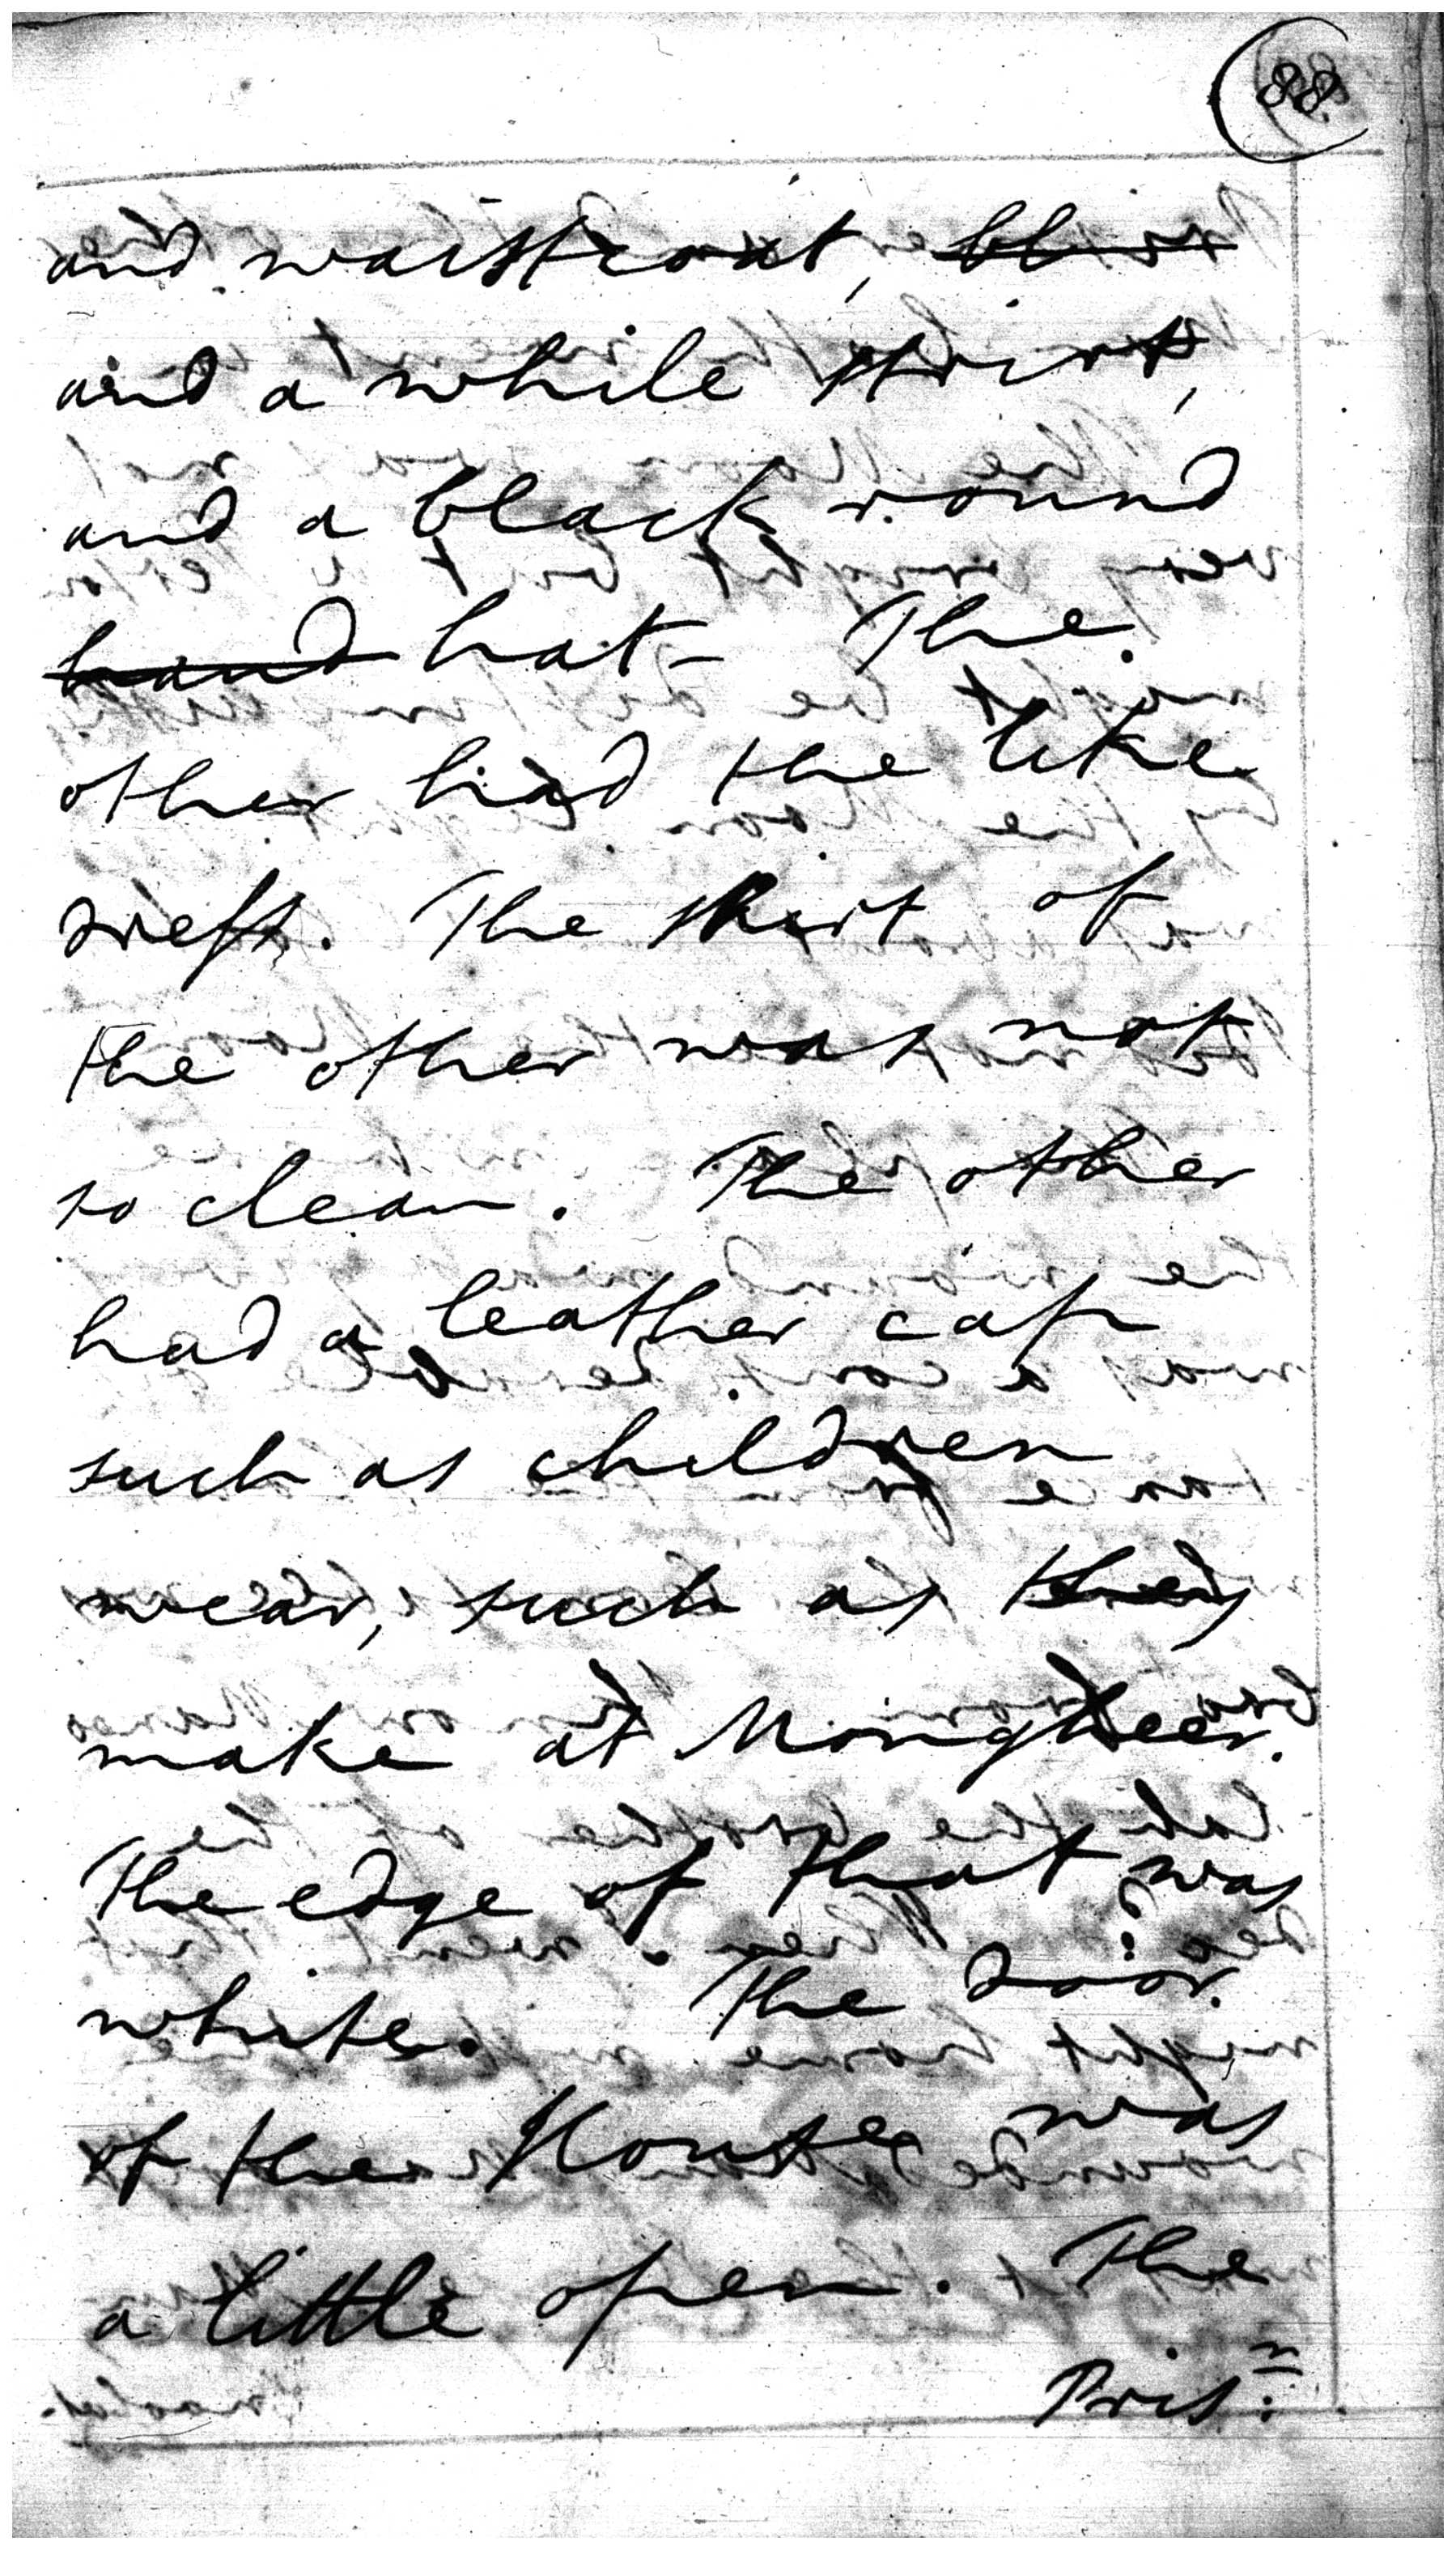 88
and waistcoat, blue
and a white shirt,
and a black round
hand hat - The
other had the like
dress. The shirt of
the other was not
so clean. The other
had a leather cap
such as children
wear, such as they
make at Mongheer.
The edge of that was
white. The door
of the House was
a little open. The
Pris:n